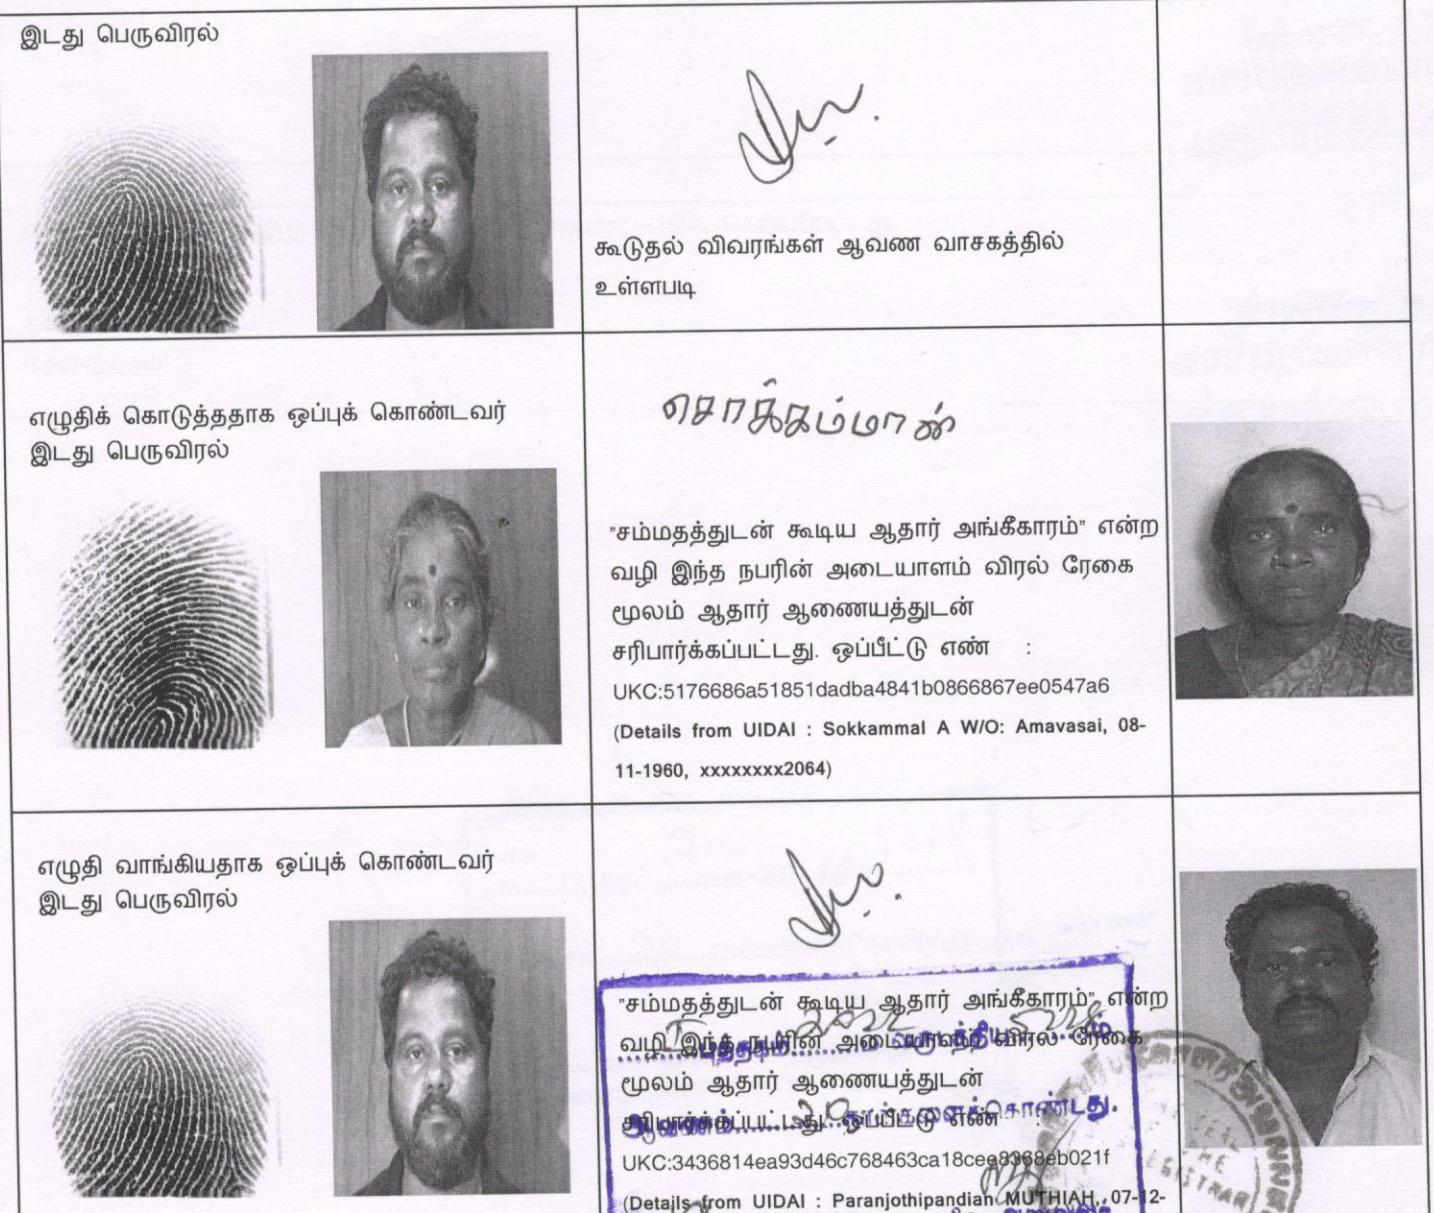 இடது பெருவிரல்
கூடுதல் விவரங்கள் ஆவண வாசகத்தில்
உள்ளபடி
எழுதிக் கொடுத்ததாக ஒப்புக் கொண்டவர்
இடது பெருவிரல்
சொக்கம்மாள்
"சம்மதத்துடன் கூடிய ஆதார் அங்கீகாரம்" என்ற
வழி இந்த நபரின் அடையாளம் விரல் ரேகை
மூலம் ஆதார் ஆணையத்துடன்
சரிபார்க்கப்பட்டது. ஒப்பீட்டு எண் :
UKC:5176686a51851dadba4841b0866867ee0547a6
(Details from UIDAI : Sokkammal A W/O: Amavasai, 08-
11-1960, xxxxxxxx2064)
எழுதி வாங்கியதாக ஒப்புக் கொண்டவர்
இடது பெருவிரல்
"சம்மதத்துடன் கூடிய ஆதார் அங்கீகாரம்" என்ற
வழி இந்த நபரின் அடையாளம் விரல் ரேகை
மூலம் ஆதார் ஆணையத்துடன்
சரிபார்க்கப்பட்டது. ஒப்பீட்டு எண் :
UKC:3436814ea93d46c768463ca18cee8368eb021f
(Details from UIDAI : Paranjothipandian MUTHIAH, 07-12-